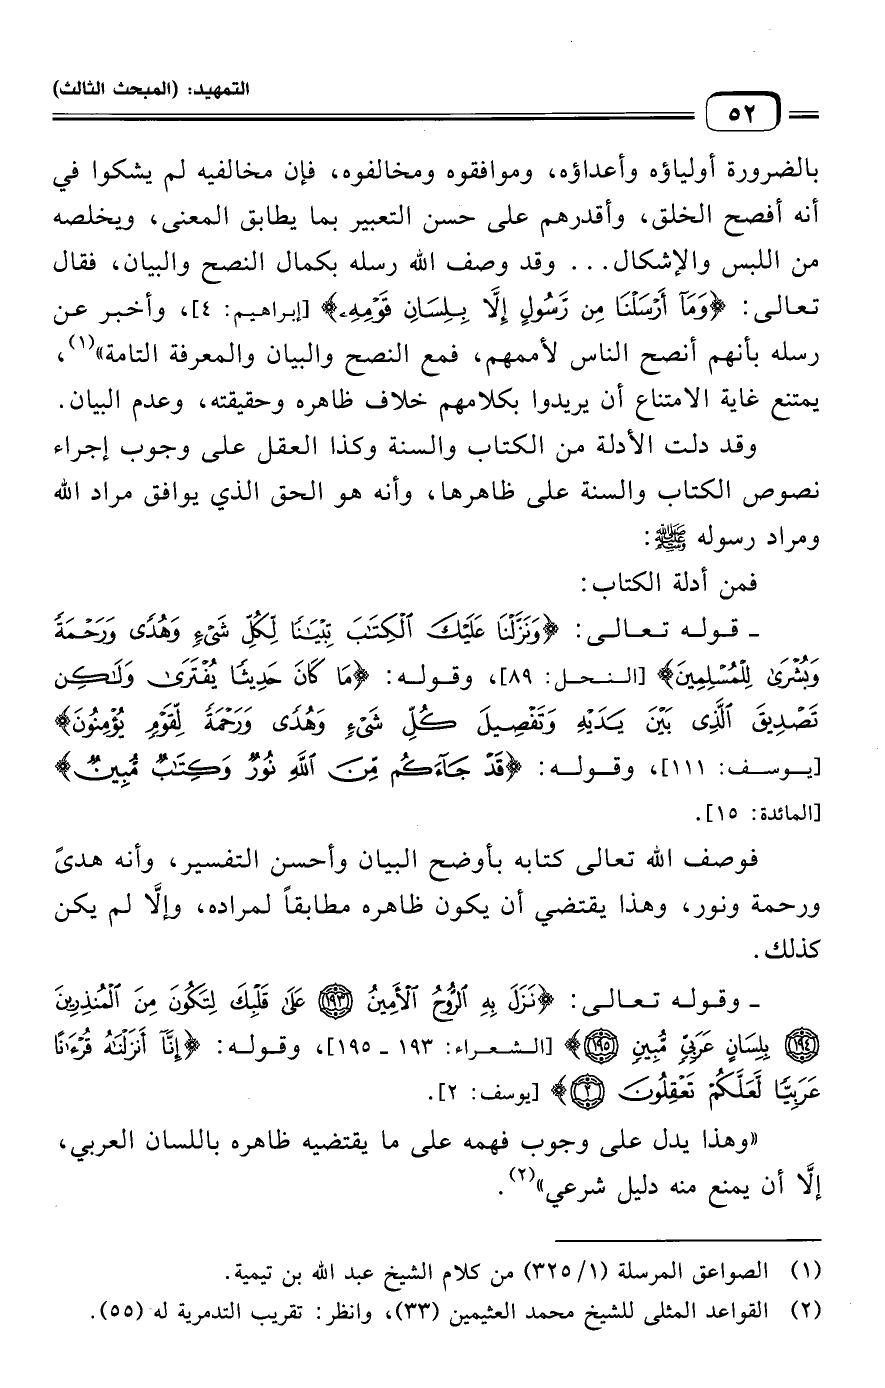 التمهيد: (المبحث الثالث)
٥٢
بالضرورة أولياؤه وأعداؤه، وموافقوه ومخالفوه، فإن مخالفيه لم يشكوا في
أنه أفصح الخلق، وأقدرهم على حسن التعبير بما يطابق المعنى، ويخلصه
من اللبس والإشكال... وقد وصف الله رسله بكمال النصح والبيان، فقال
تعالى: ﴿وَمَآ أَرۡسَلۡنَا مِن رَّسُولٍ إِلَّا بِلِسَانِ قَوۡمِهِۦ﴾ [إبراهيم: ٤]، وأخبر عن
رسله بأنهم أنصح الناس لأممهم، فمع النصح والبيان والمعرفة التامة»(١)،
يمتنع غاية الامتناع أن يريدوا بكلامهم خلاف ظاهره وحقيقته، وعدم البيان.
وقد دلت الأدلة من الكتاب والسنة وكذا العقل على وجوب إجراء
نصوص الكتاب والسنة على ظاهرها، وأنه هو الحق الذي يوافق مراد الله
ومراد رسوله ﷺ:
فمن أدلة الكتاب:
ـ قوله تعالى: ﴿وَنَزَّلۡنَا عَلَيۡكَ ٱلۡكِتَٰبَ تِبۡيَٰنٗا لِّكُلِّ شَيۡءٖ وَهُدٗى وَرَحۡمَةٗ
وَبُشۡرَىٰ لِلۡمُسۡلِمِينَ﴾ [النحل: ٨٩]، وقوله: ﴿مَا كَانَ حَدِيثٗا يُفۡتَرَىٰ وَلَٰكِن
تَصۡدِيقَ ٱلَّذِي بَيۡنَ يَدَيۡهِ وَتَفۡصِيلَ كُلِّ شَيۡءٖ وَهُدٗى وَرَحۡمَةٗ لِّقَوۡمٖ يُؤۡمِنُونَ﴾
[يوسف: ١١١]، وقوله: ﴿قَدۡ جَآءَكُم مِّنَ ٱللَّهِ نُورٞ وَكِتَٰبٞ مُّبِينٞ﴾
[المائدة: ١٥].
فوصف الله تعالى كتابه بأوضح البيان وأحسن التفسير، وأنه هدىً
ورحمة ونور، وهذا يقتضي أن يكون ظاهره مطابقاً لمراده، وإلَّا لم يكن
كذلك.
ـ وقوله تعالى: ﴿نَزَلَ بِهِ ٱلرُّوحُ ٱلۡأَمِينُ ١٩٣ عَلَىٰ قَلۡبِكَ لِتَكُونَ مِنَ ٱلۡمُنذِرِينَ
١٩٤ بِلِسَانٍ عَرَبِيّٖ مُّبِينٖ ١٩٥﴾ [الشعراء: ١٩٣ ـ ١٩٥]، وقوله: ﴿إِنَّآ أَنزَلۡنَٰهُ قُرۡءَٰنًا
عَرَبِيّٗا لَّعَلَّكُمۡ تَعۡقِلُونَ ٢﴾ [يوسف: ٢].
«وهذا يدل على وجوب فهمه على ما يقتضيه ظاهره باللسان العربي،
إلَّا أن يمنع منه دليل شرعي»(٢).
(١) الصواعق المرسلة (١/ ٣٢٥) من كلام الشيخ عبد الله بن تيمية.
(٢) القواعد المثلى للشيخ محمد العثيمين (٣٣)، وانظر: تقريب التدمرية له (٥٥).